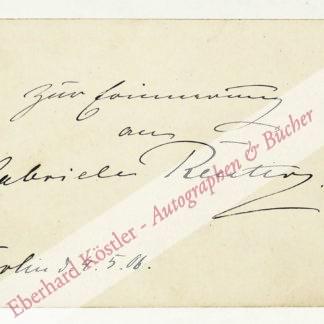 Zur Erinnerung
an
Gabriele Reuter.
Berlin d. 4. 5. 06.
Eberhard Köstler - Autographen & Bücher